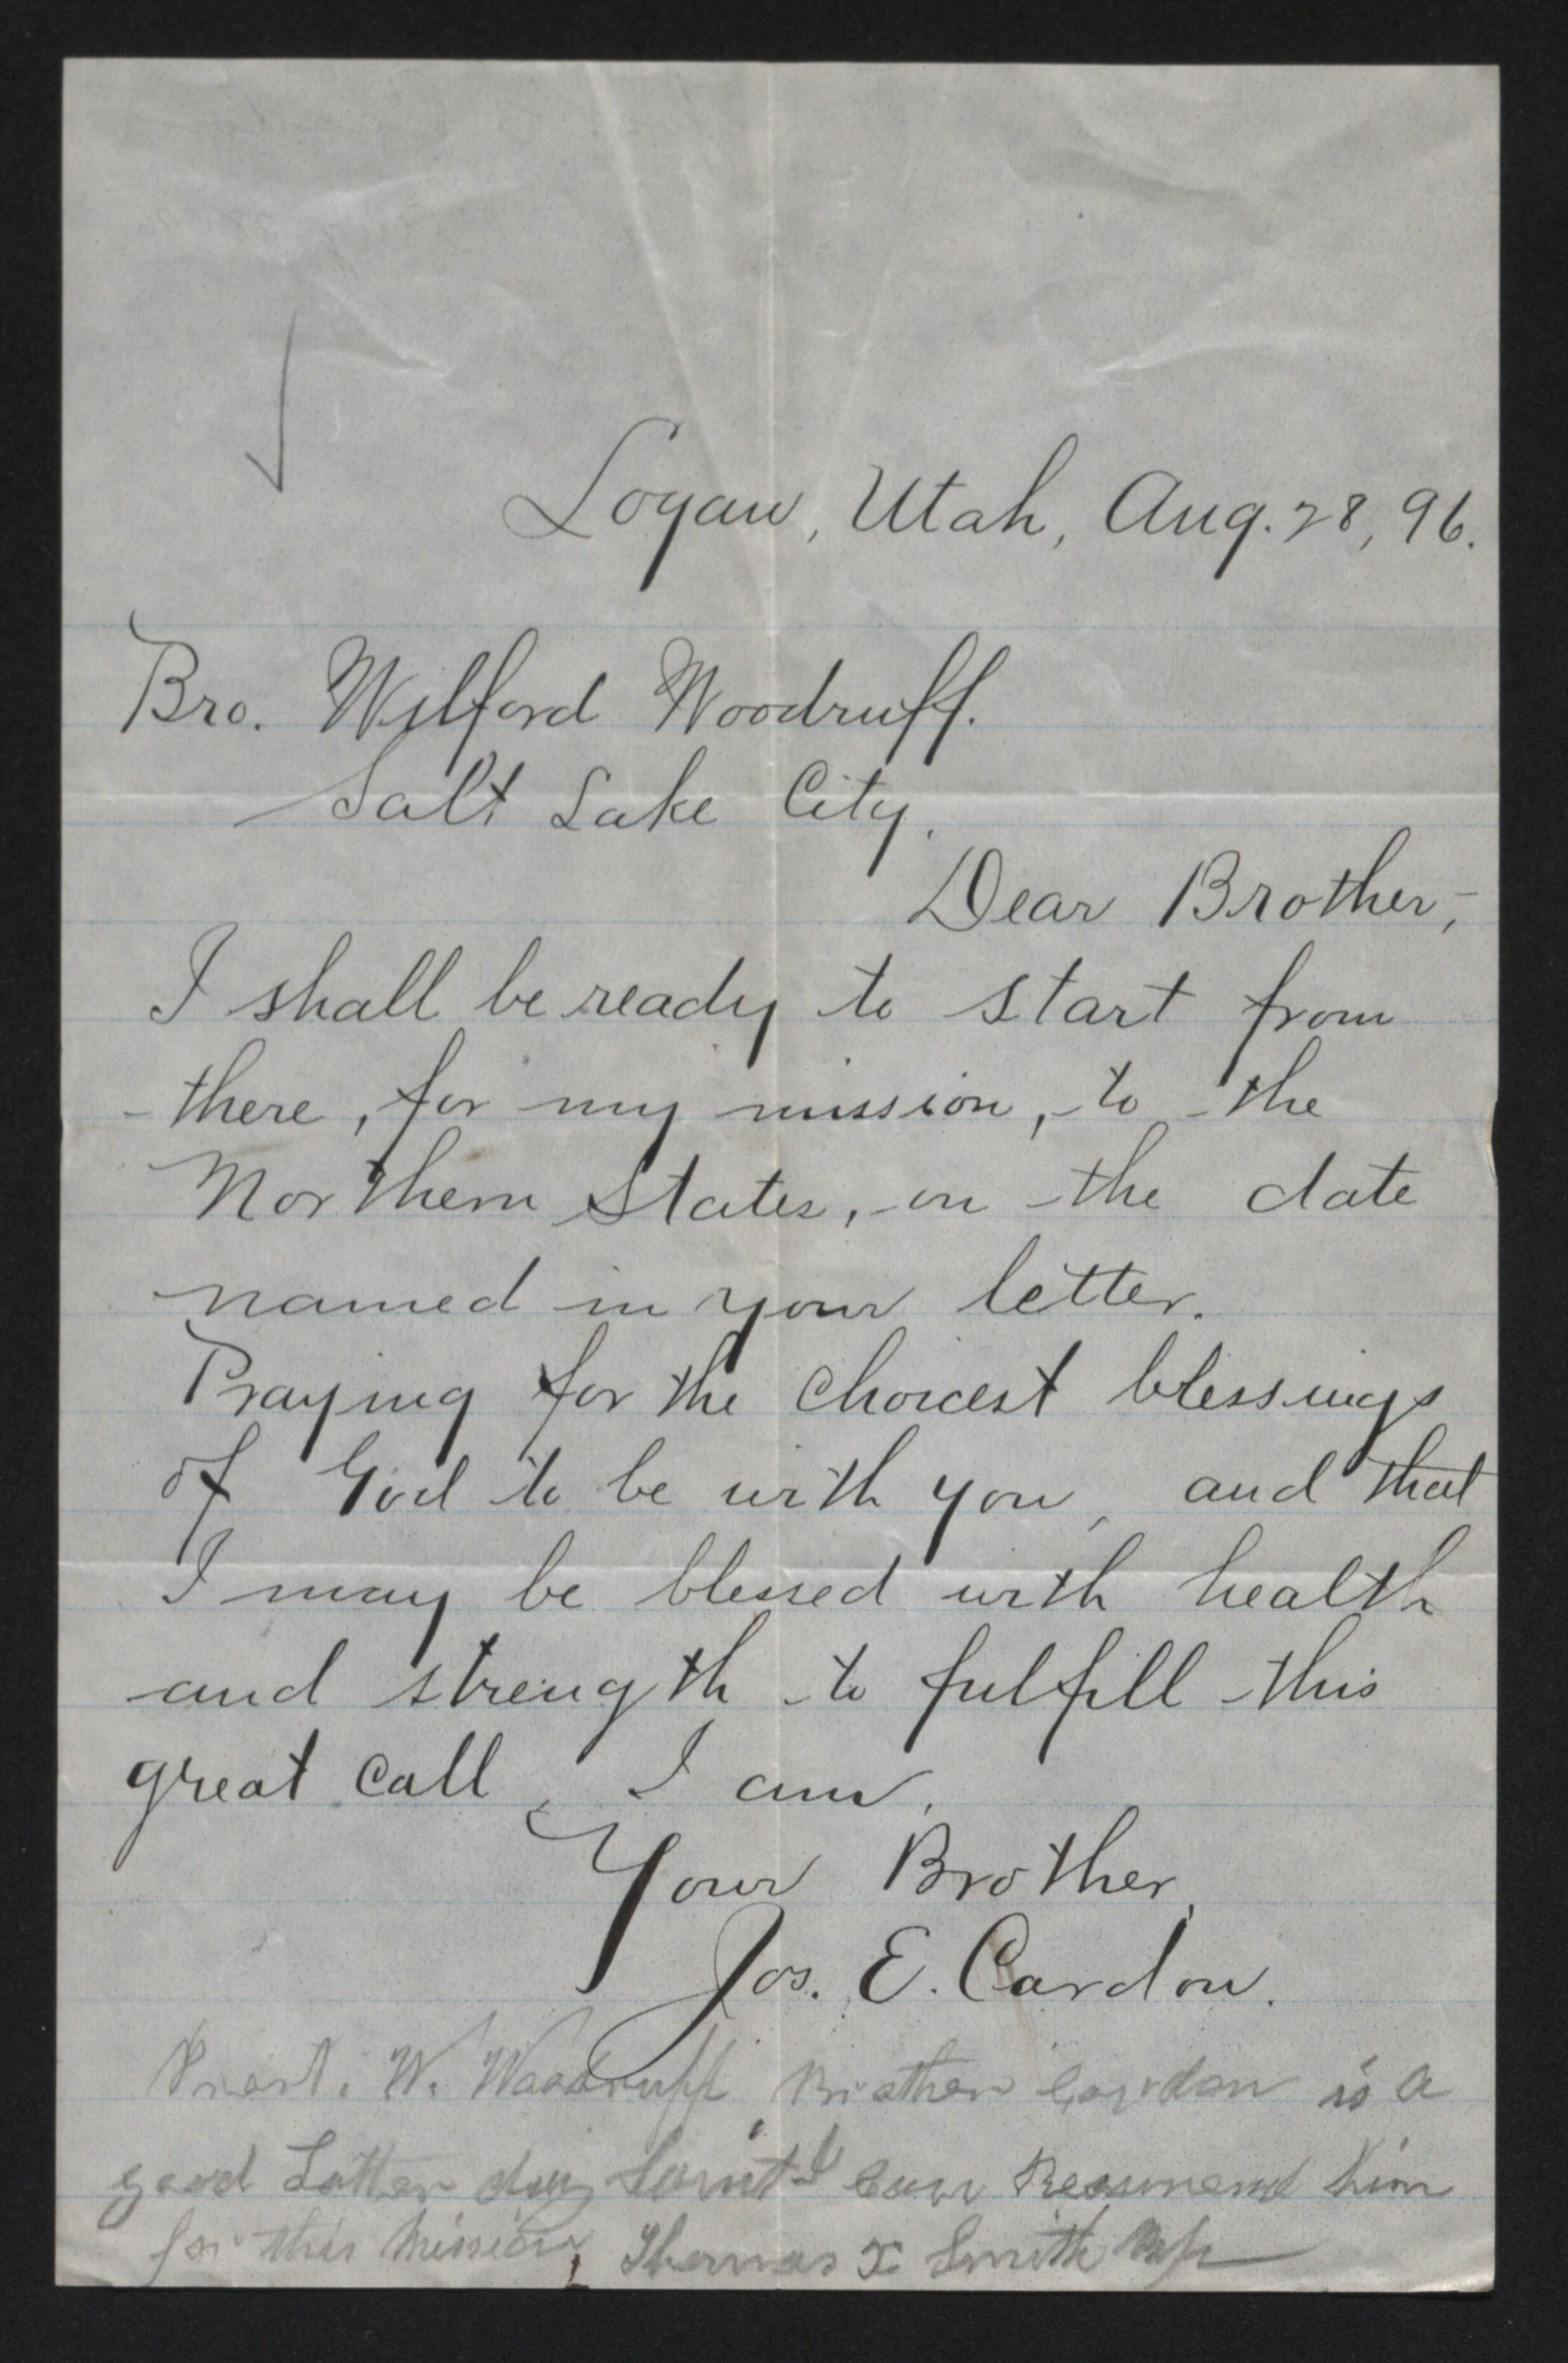 Logan, Utah, Aug. 28, 96.
Bro. Wilford Woodruff.
Salt Lake City.
Dear Brother,-
I shall be ready to start from
there, for my mission, to the
Northern States, on the date
named in your letter.
Praying for the choicest blessings
of God to be with you, and that
I may be blessed with health
and strength to fulfill this
great call, I am,
Your Brother,
Jos. E. Cardon.
Prest. W. Woodruff, Brother Cardon is a
good Latter day Saint I can Recommend him
for this Mission, Thomas X Smith Bp